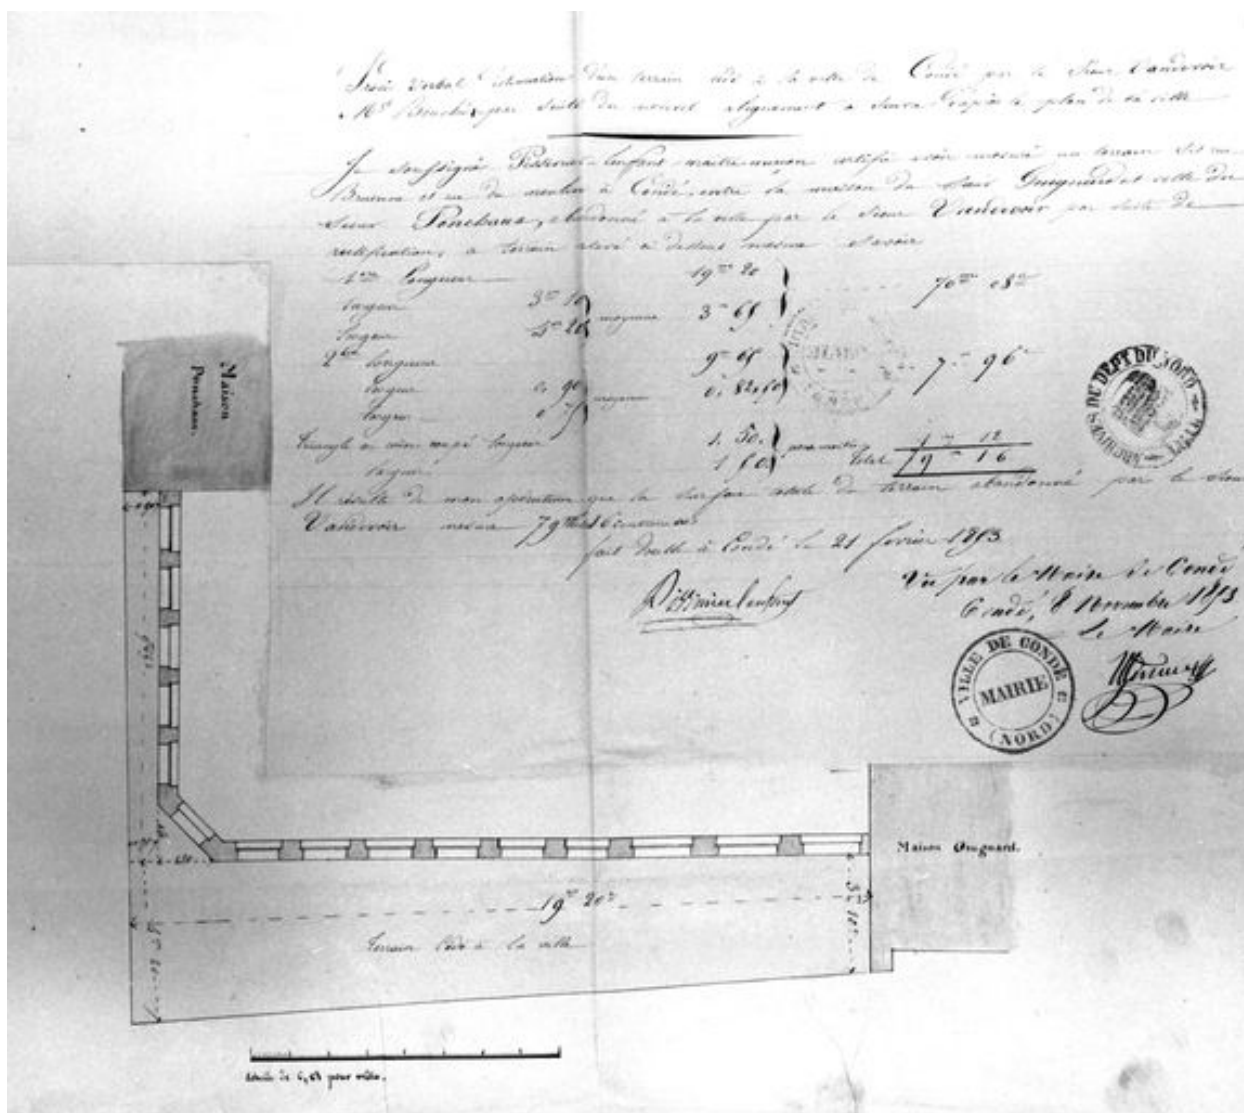 Procès Verbal d'estimation d'un terrain cédé à la ville de Condé par le Sieur Vandervoir
par suite du nouvel alignement à suivre d'après le plan de la ville
Je soussigné Pissonier-Lenfant maître maçon certifie avoir mesuré un terrain sis rue
et rue du moulin à Condé, entre la maison du Sieur Guignard et celle du
Sieur Ponchaux, abandonné à la ville par le Sieur Vandervoir par suite de
rectification, ce terrain mesure Savoir
1ère Longueur 19m 20
largeur 3m 10
largeur 5m 20 moyenne 3m 65 70m 08
2ème longueur 9m 65
largeur 0. 90
largeur 0. 75 moyenne 0. 82.50 7m 96
Triangle longueur 1. 50.
largeur 1. 50. 1m 12
Total 79m 16
Il résulte de mon opération que la surface totale du terrain abandonné par le Sieur
Vandervoir mesure 79 16
fait double à Condé le 21 février 1853
Vu par le Maire de Condé
Condé, 8 Novembre 1853
Le Maire
ARCHIVES DU DEPT DU NORD
LILLE
VILLE DE CONDÉ
MAIRIE
(NORD)
Maison
Ponchaux.
Maison Guignard.
19m 20c
3m 10c
5m 20
Terrain cédé à la ville
Echelle de 0,03 pour mètre.